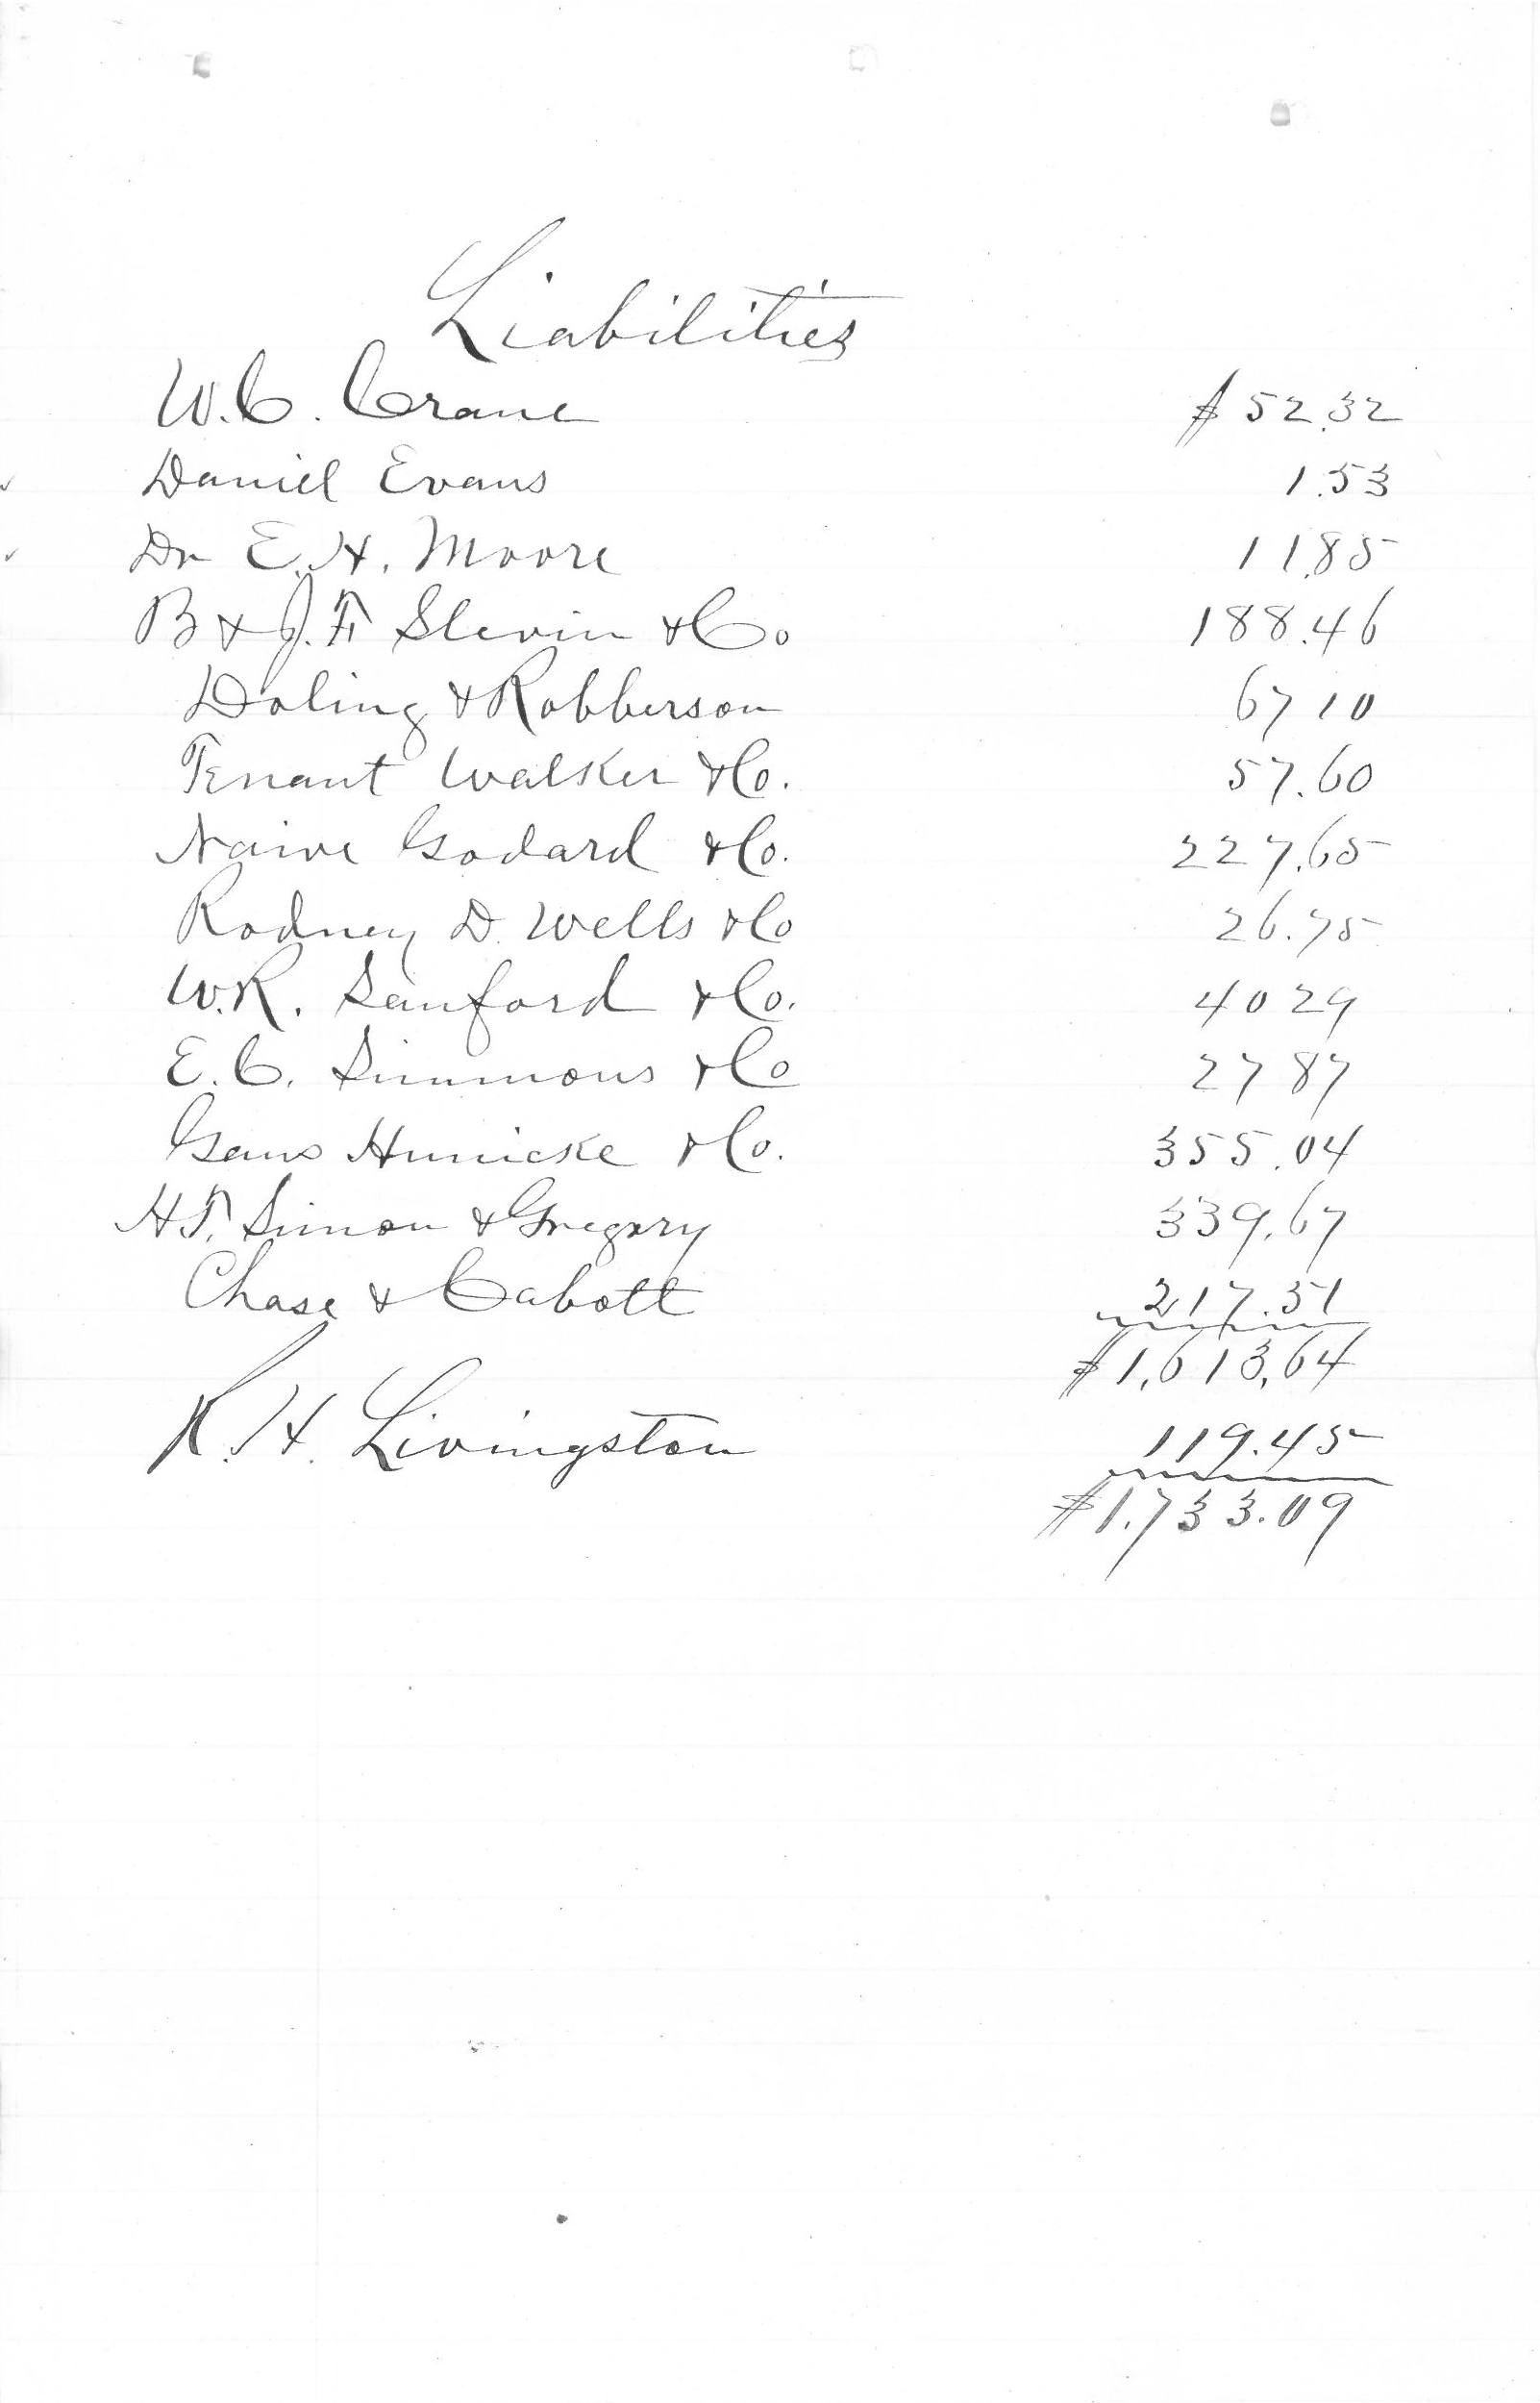 Liabilities
W.C. Crane $52.32
Daniel Evans 1.53
Dr E.H. Moore 11.85
B & J.F. Slevin & Co 188.46
Doling & Robberson 67 10
Tenant Walker & Co. 57.60
Naive Godard & Co. 227.65
Rodney D. Wells & Co 26.75
W.R. Sanford & Co. 40 29
E.C. Simmons & Co 27 87
Gaus Hunicke & Co. 355.04
H.F. Simon & Gregory 339.67
Chase & Cabott 217.51
$1,613,64
R.H. Livingston 119.45
$1.733.09